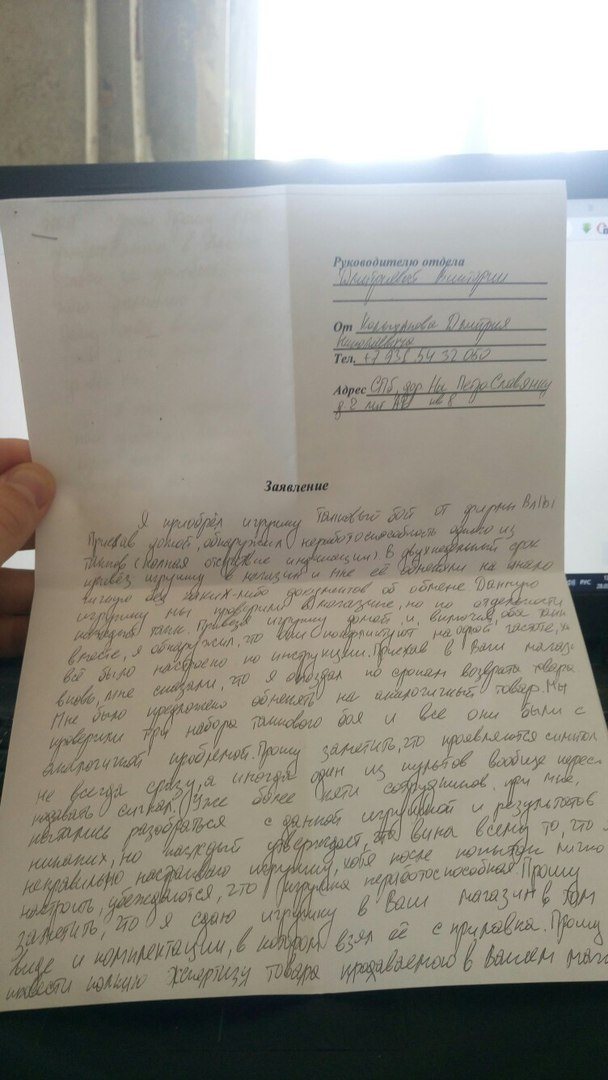 Руководителю отдела
Дмитриевой Виктории
От Дмитрия
Николаевича
Тел. +7 931 54 32 060
Адрес СПб, дор. На Петро Славянку
д 2 кв 8
Заявление
Я приобрёл игрушку Танковый бой от фирмы
Приехав домой, обнаружил неработоспособность одного из
танков (полная отсутствие индикации) В двухнедельный срок
привёз игрушку в магазин и мне её обменяли на анало
гичную без каких-либо документов об обмене. Данную
игрушку мы проверили в магазине, но по отдельности
каждый танк. Привезя игрушку домой и, включив, оба танка
вместе, я обнаружил, что они на одной частоте, хо
всё было настроено по инструкции. Приехав в Ваш магаз
вновь, мне сказали, что я опоздал по срокам возврата товара.
Мне было предложено обменять на аналогичный товар. Мы
проверили три набора танкового боя и все они были с
аналогичной проблемой. Прошу заметить, что проявляются симптом
не всегда сразу, а иногда один из пультов вообще перест
подавать сигнал. Уже более пяти сотрудников, при мне,
пытались разобраться с данной игрушкой и результатов
никаких, но каждый утверждает, что вина всему то, что я
неправильно настраиваю игрушку, хотя после попытки лично
настроить, убеждаются, что игрушка неработоспособная. Прошу
заметить, что я сдаю игрушку в Ваш магазин в том
виде и комплектации, в котором взял её с прилавка. Прошу
провести полную экспертизу товара продаваемого в Вашем мага